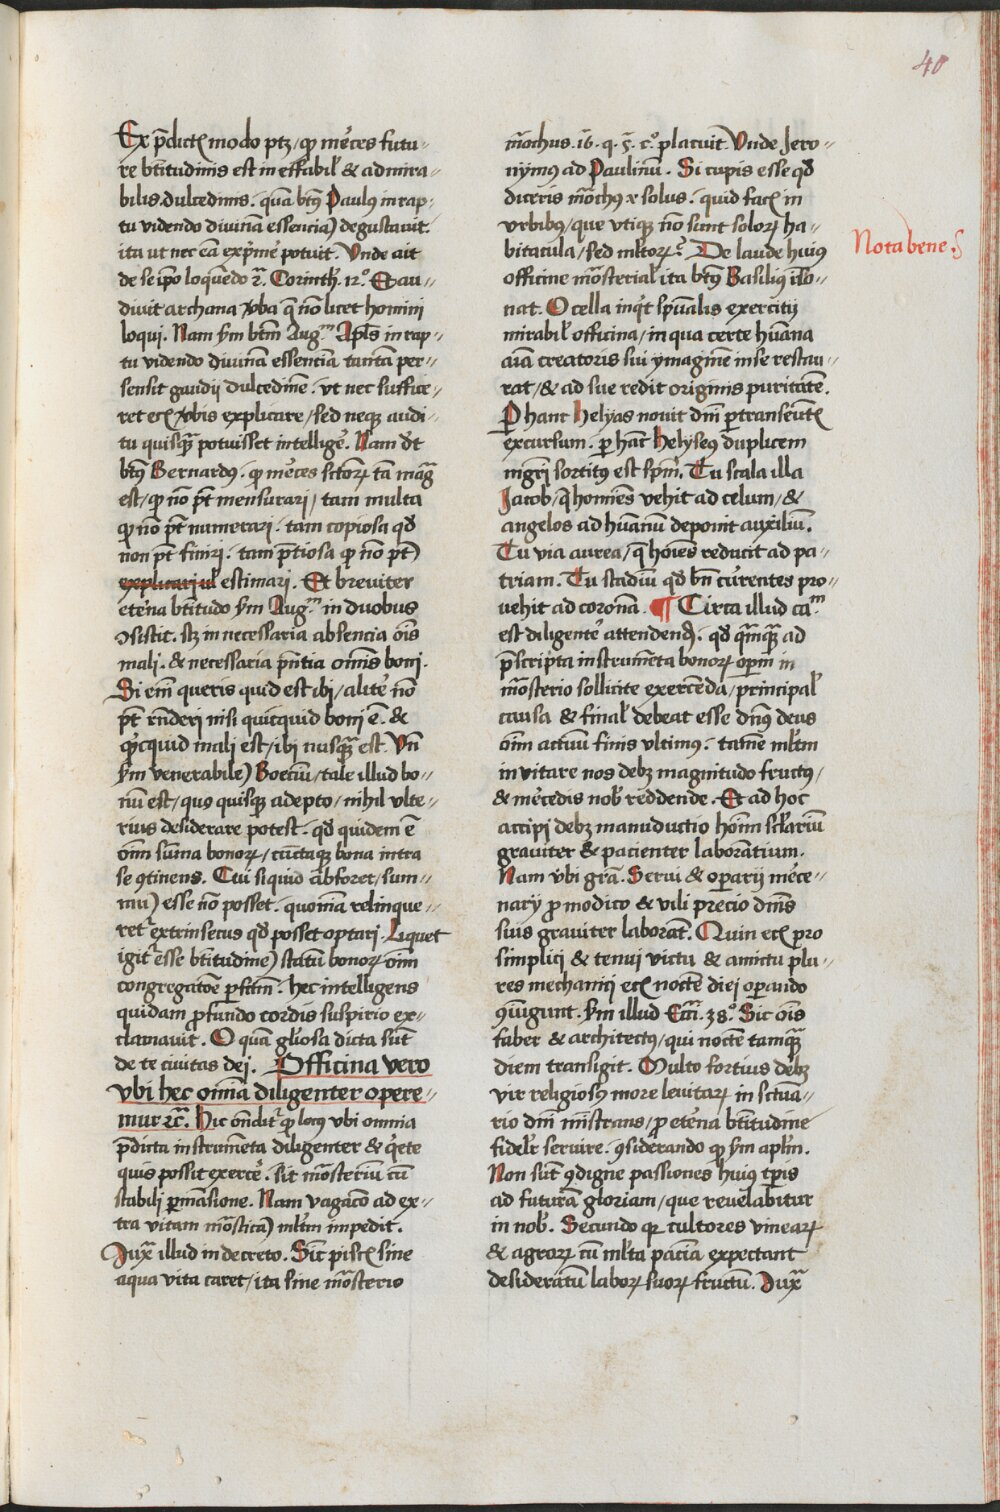 40
Ex p̄dictꝭ modo ptꝫ / ꝙ me᷑ces futu-
re bt̄itudinis est in effabil̕ & admira-
bilis dulcedinis. quā btꝰ Paulꝰ in rap-
tu videndo diuinā essenciā degustauit.
ita ut nec eā exp̄me᷑ potuit. Vnde ait
de se ip̄o loquēdo 2ͣ. Corinth̕. 12°. Et au-
diuit archana v̕ba q̄ nō licet homini
loqui. Nam s̄m btm̄ Augᵐ Apl̄s in rap-
tu videndo diuinā essentiā tantā per-
sensit gaudij dulcedinē. vt nec suffice-
ret etꝭ v̕bis explicare / sed neqꝫ audi-
tu quisqᷓ potuisset intellige᷑. Nam dt̄
btꝰ Bernardꝰ. ꝙ me᷑ces sctōꝝ tā magᷓ
est / ꝙ nō pt̄ mensurari / tam multa
ꝙ nō pt̄ numerari. tam copiosa qđ
non pt̄ finiri. tam p̄tiosa ꝙ nō pt̄
explicari ul̕ estimari. Et breuiter
ete᷑na bt̄itudo s̄m Augᵐ in duobus
ꝯsistit. scꝫ in necessaria absencia oīs
mali. & necessaria p̄ntia omīs boni.
Si em̄ queris quid est ibi / alite᷑ nō
pt̄ rn̄deri nisi quicquid boni ē. &
qͥcquid mali est / ibi nusqᷓ est. Vn̄
s̄m venerabilē Boeciū / tale illud bo-
nū est / quo quisqꝫ adepto / nihil vlte-
rius desiderare potest. qđ quidem ē
oīm sūma bonoꝝ / cūctaqꝫ bona intra
se ꝯtinens. Cui si quid abforet / sum-
mū esse nō posset. quoniā relinque-
ret᷑ extrinsecus qđ posset optari. Liquet
igit᷑ esse bt̄itudinē statū bonoꝝ oīm
congregatōe ꝑfctm̄. hec intelligens
quidam ꝓfundo cordis suspirio ex-
clamauit. O quā gl̄iosa dicta sūt
de te ciuitas dei. Officina vero
vbi hec omīa diligenter opere-
mur ⁊cͣ. Hic on̄dit᷑ ꝙ locꝰ vbi omnia
p̄dicta instrumēta diligenter & qͥete
quis possit exerce᷑. sit mōsteriū cū
stabili ꝑmāsione. Nam vagacō ad ex-
tra vitam mōsticā ml̄tm impedit.
Iuxͣ illud in decreto. Sic᷑ piscꝭ sine
aqua vita caret / ita sine mōsterio
mōchus. 16. q. ꝯ. c°. placuit. Vnde Jero-
nymꝰ ad Paulinū. Si cupis esse qđ
diceris mōchꝰ ⁊ solus. quid facꝭ in
vrbibꝰ / que vtiqꝫ nō sunt soloꝝ ha-
bitacula / sed ml̄toꝝ? De laude huiꝰ
officine mōsterial̕ ita btꝰ Basiliꝰ ꝑso-
nat. O cella inqͥt spūalis exercitij
mirabil̕ officina / in qua certe hūana
aīa creatoris sui ymaginē in se restau-
rat / & ad sue redit originis puritatē.
Ꝑ hanc Helyas nouit dnī ꝑtranseūtꝭ
excursum. ꝑ hāc Helyseꝰ duplicem
mgrī sortitꝰ est spm̄. Tu scala illa
Jacob / q̄ homīes vehit ad celum / &
angelos ad hūanū deponit auxiliū.
Tu via aurea / q̄ hoīes reducit ad pa-
triam. Tu stadiū qđ bn̄ cur᷑entes pro-
uehit ad coronā. ¶ Circa illud caᵐ
est diligente᷑ attendenđ. qđ qᷓmqᷓ ad
p̄scripta instrumēta bonoꝝ opm̄ in
mōsterio sollicite exercēda / principal̕
causa & final̕ debeat esse dn̄s deus
oīm actuū finis vltimꝰ. tamē ml̄tm
invitare nos debꝫ magnitudo fructꝰ /
& me᷑cedis nob̕ reddende. Et ad hoc
accipi debꝫ manuductio hoīm scl̄ariū
grauiter & pacienter laborātium.
Nam v̕bi grā. Serui & oꝑarij me᷑ce-
narij ꝓ modico & vili precio dnīs
suis grauiter laborāt. Quin etꝭ pro
simplici & tenui victu & amictu plu-
res mechanici etꝭ noctē diei oꝑando
ꝯiūgunt. s̄m illud Eccī. 38°. Sic oīs
faber & architectꝰ / qui noctē tamqᷓ
diem transigit. Multo fortius debꝫ
vir religiosꝰ more leuitaꝝ in sctūa-
rio dnī mīstrans / ꝓ ete᷑na bt̄itudine
fidelr̕ seruire. ꝯsiderando ꝙ s̄m apl̄m.
Non sūt ꝯdigne passiones huiꝰ tꝑis
ad futurā gloriam / que reuelabitur
in nob̕. Secundo qꝛ cultores vineaꝝ
& agroꝝ cū ml̄ta paciā expectant
desideratū laboꝝ suoꝝ fructū. Iuxͣ
Nota bene